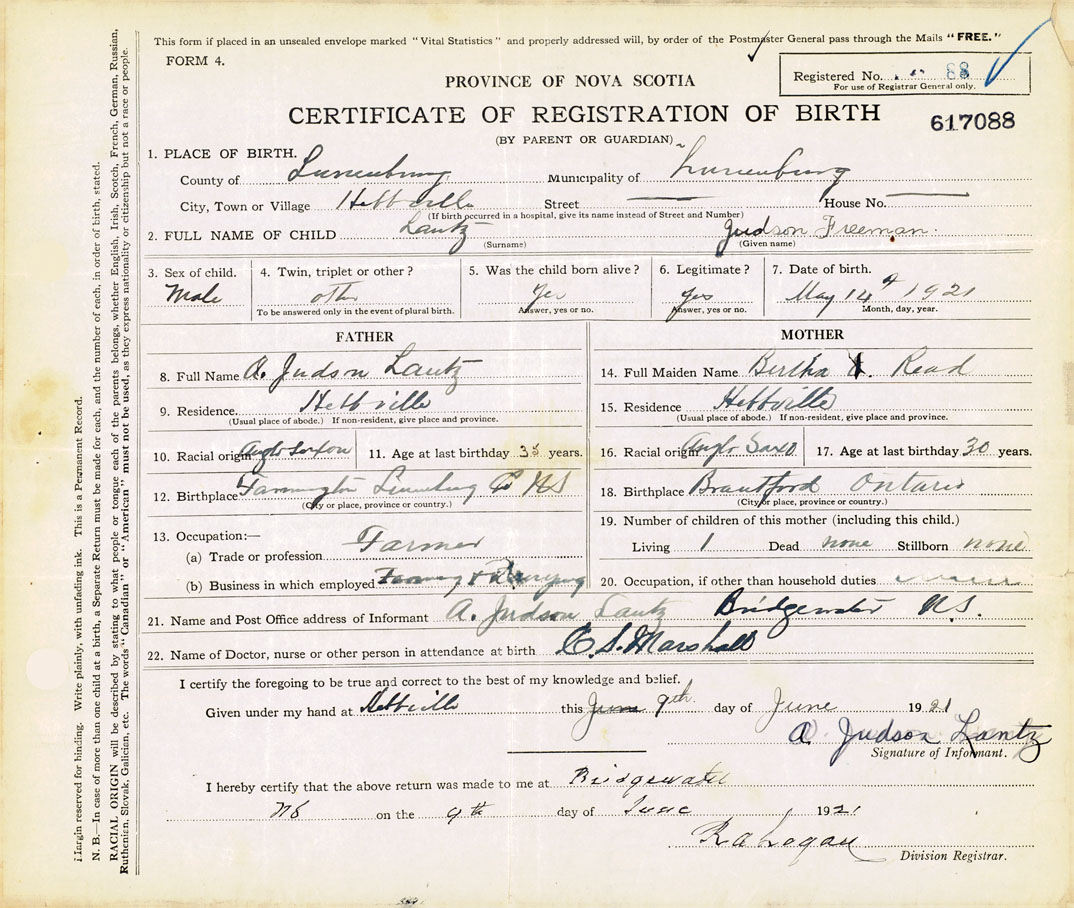 This form if placed in an unsealed envelope marked "Vital Statistics" and properly addressed will, by order of the Postmaster General pass through the Mails "FREE."
FORM 4.
Registered No. 88
For use of Registrar General only.
PROVINCE OF NOVA SCOTIA
CERTIFICATE OF REGISTRATION OF BIRTH
617088
(BY PARENT OR GUARDIAN)
1. PLACE OF BIRTH.
County of Lunenburg Municipality of Lunenburg
City, Town or Village Hebbville Street — House No. —
(If birth occurred in a hospital, give its name instead of Street and Number)
2. FULL NAME OF CHILD Lantz Judson Freeman.
(Surname) (Given name)
3. Sex of child. 4. Twin, triplet or other? 5. Was the child born alive? 6. Legitimate? 7. Date of birth.
Male other Yes yes May 14th 1921
To be answered only in the event of plural birth. Answer, yes or no. Answer, yes or no. Month, day, year.
FATHER
8. Full Name A. Judson Lantz
9. Residence Hebbville
(Usual place of abode.) If non-resident, give place and province.
10. Racial origin Anglo Saxon 11. Age at last birthday 35 years.
12. Birthplace Farmington Lunenburg Co NS
(City or place, province or country.)
13. Occupation:—
(a) Trade or profession Farmer
(b) Business in which employed Farming &
MOTHER
14. Full Maiden Name Bertha Read
15. Residence Hebbville
(Usual place of abode.) If non-resident, give place and province.
16. Racial origin Anglo Saxo 17. Age at last birthday 30 years.
18. Birthplace Brantford Ontario
(City or place, province or country.)
19. Number of children of this mother (including this child.)
Living 1 Dead none Stillborn none
20. Occupation, if other than household duties
21. Name and Post Office address of Informant A. Judson Lantz Bridgewater N.S.
22. Name of Doctor, nurse or other person in attendance at birth C. S. Marshall
I certify the foregoing to be true and correct to the best of my knowledge and belief.
Given under my hand at Hebbville this June 9th day of June 1921
A. Judson Lantz
Signature of Informant.
I hereby certify that the above return was made to me at Bridgewater
NS on the 9th day of June 1921
R a Logan
Division Registrar.
Margin reserved for binding. Write plainly, with unfading ink. This is a Permanent Record.
N. B.—In case of more than one child at a birth, a Separate Return must be made for each, and the number of each, in order of birth, stated.
RACIAL ORIGIN will be described by stating to what people or tongue each of the parents belongs, whether English, Irish, Scotch, French, German, Russian,
Ruthenian, Slovak, Galician, etc. The words "Canadian" or "American" must not be used, as they express nationality or citizenship but not a race or people.